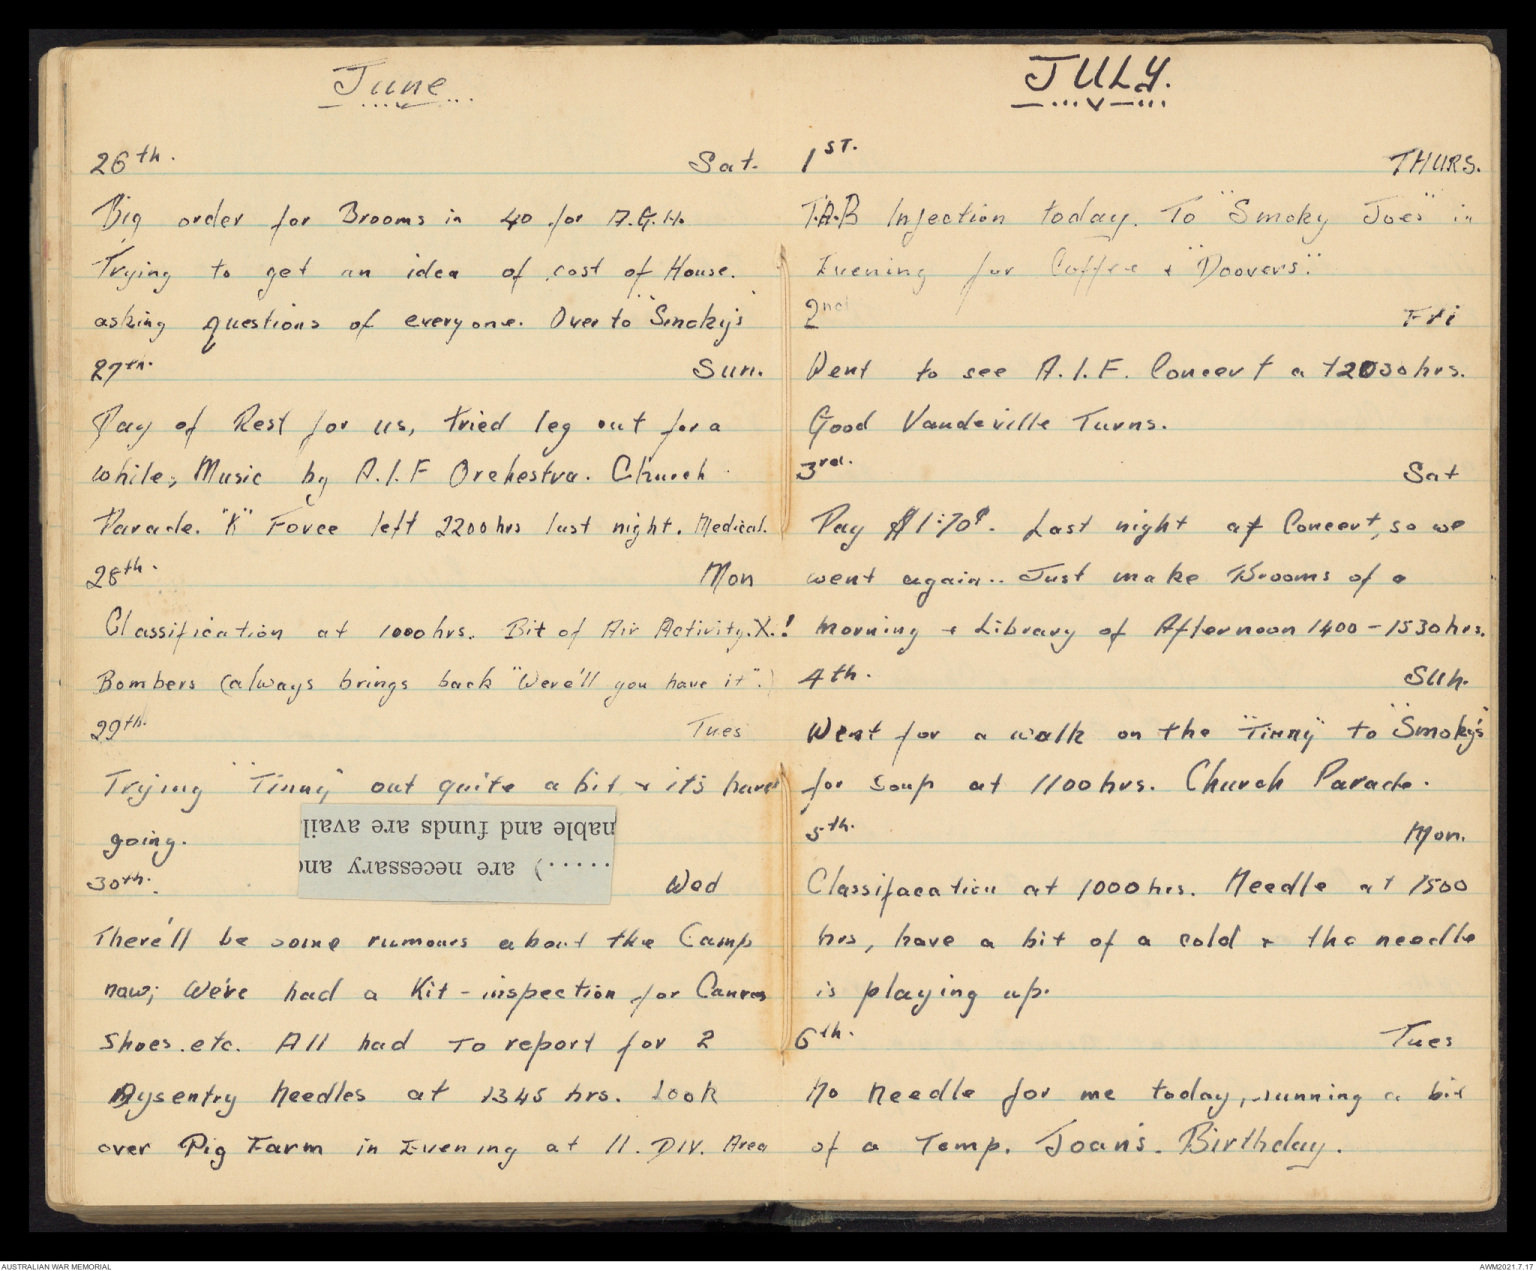 June
26th. Sat.
Big order for Brooms in 40 for A.G.H.
Trying to get an idea of cost of House.
asking questions of everyone. Over to "Smoky's"
27th. Sun.
Day of Rest for us, tried leg out for a
while, Music by A.I.F Orchestra. Church
Parade. "K" Force left 2200hrs last night. Medical.
28th. Mon
Classification at 1000hrs. Bit of Air Activity.X.!
Bombers (always brings back "Were'll you have it".)
29th. Tues
Trying "Tinny" out quite a bit & it's hard
going.
nable and funds are avail
.....) are necessary and
30th. Wed
There'll be some rumours about the Camp
now; We've had a Kit-inspection for Canvas
Shoes.etc. All had to report for 2
Dysentry Needles at 1345 hrs. Look
over Pig Farm in Evening at 11. DIV. Area
JULY.
1ST. THURS.
T.A.B Injection today. To "Smoky Joes" in
Evening for Coffee & "Doovers".
2nd Fri
Went to see A.I.F. Concert at 2030hrs.
Good Vaudeville Turns.
3rd. Sat
Pay $1:70¢. Last night of Concert, so we
went again.. Just make Brooms of a
morning & Library of Afternoon 1400-1530hrs.
4th. Sun.
Went for a walk on the "Tinny" to "Smoky's"
for soup at 1100hrs. Church Parade.
5th. Mon.
Classifacation at 1000hrs. Needle at 1500
hrs, have a bit of a cold & the needle
is playing up.
6th. Tues
No Needle for me today, running a bit
of a Temp. Joan's. Birthday.
AUSTRALIAN WAR MEMORIAL
AWM2021.7.17